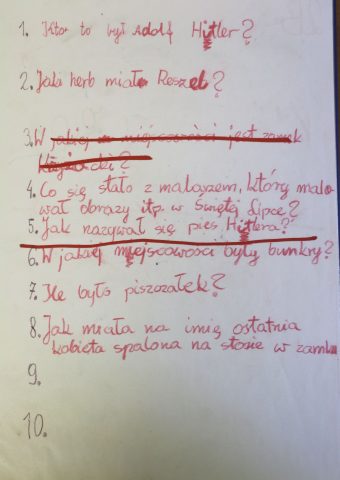 1. Kto to był Adolf Hitler?
2. Jaki herb miało Reszel?
3. W jakiej miejscowości jest zamek
4. Co się stało z malarzem, który malo
wał obrazy itp. w Świętej Lipce?
5. Jak nazywał się pies Hitlera?
6. W jakiej miejscowości były bunkry?
7. Ile było piszczałek?
8. Jak miała na imię ostatnia
kobieta spalona na stosie w zamku
9.
10.